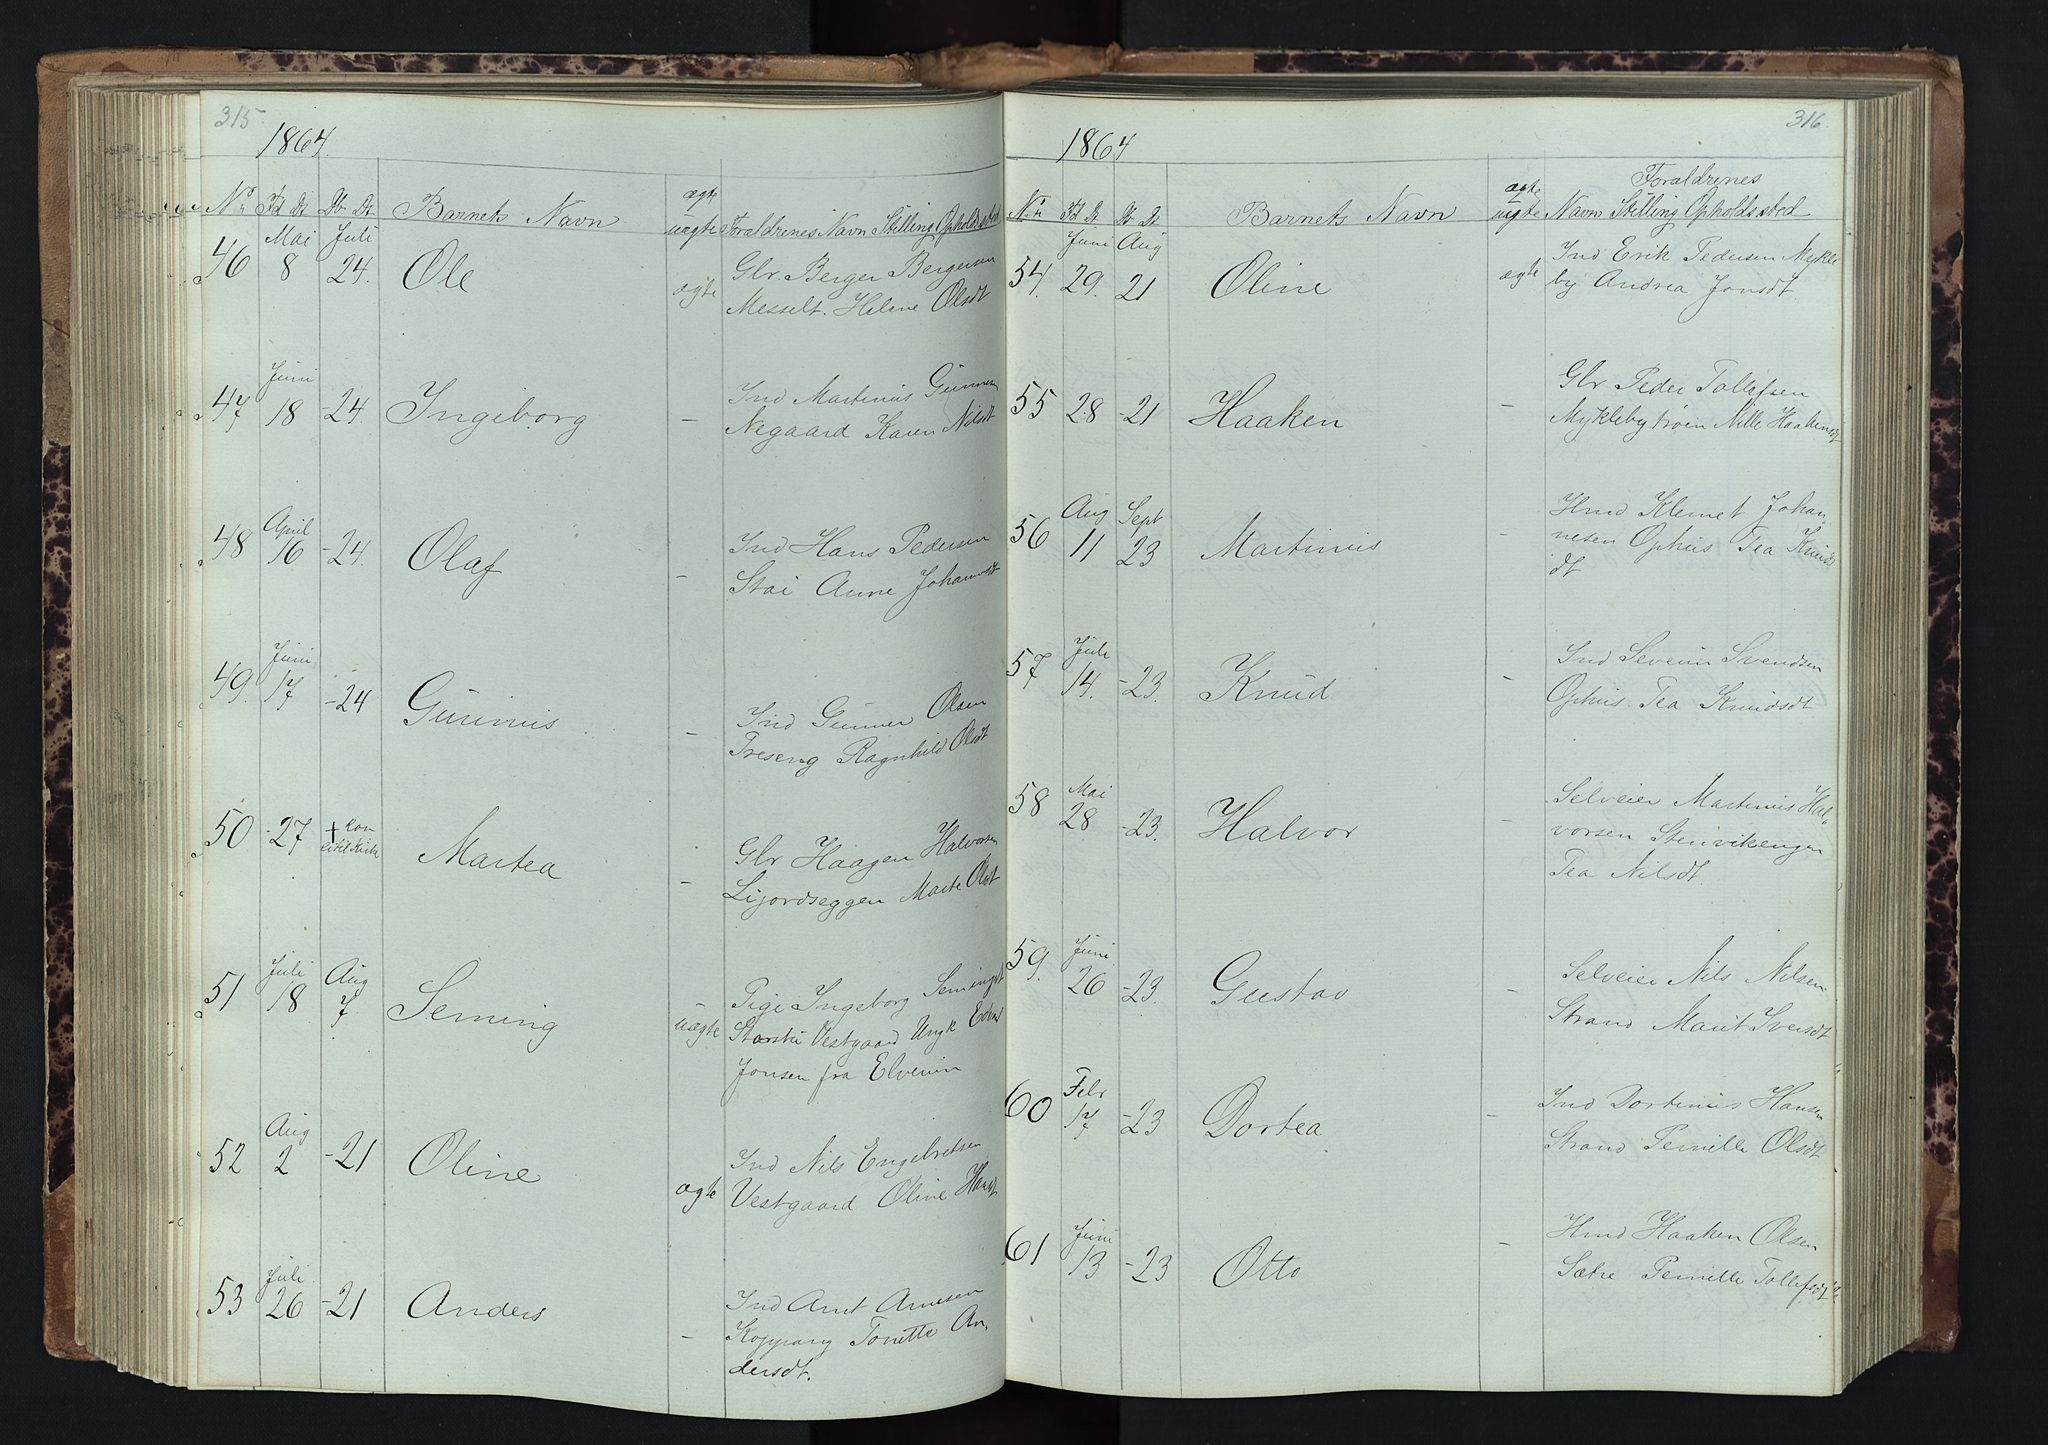 315
1864.
No Fd Dt Db Dt Barnets Navn ægte uægte Foraldrenes Navn Stilling Opholdssted
46 Mai 8 Juli 24. Ole ægte Glr. Berger Bergersen
Messelt. Helene Olsdt
47 Juni 18 -24. Ingeborg - Ind Martinus Gunner
Negaard Karen Nilsdt
48 April 16 -24. Olaf - Ind Hans Pedersen
Stai Anne Johannesdt
49. Juni 17 -24 Gunnius - Ind Gunner Olsen
Treseng Ragnhild Olsdt
50 -27 + Martea - Glr Haagen Halvorsen
Marte Olsdt
51 Juli 18 Aug 7 Seming uægte Pige Ingeborg Semingsdt
Vestgaard Ungk
Jonsen fra Elverum
52 Aug 2 -21 Oline ægte Ind Nils Engebretsen
Vestgaard Oline Hansdt
53 Juli 26 -21 Anders - Ind Arnt Arnesen
Koppang Tonette An-
dersdt.
316.
1864
No Fd Dt Db Dt Barnets Navn ægte uægte Foraldrenes
Navn Stilling Opholdssted
54. Juni 29. Aug 21 Oline ægte Ind Erik Pedersen Mykle
by Andrea Jonsdt.
55 28 -21 Haaken - Glr Peder Tollefsen
Myklebytrøen Nille Haakensdt
56 Aug 11 Sept 23 Martinus - Hmd Klemet Johan-
nesen Ophus Tea Knuds
dt
57 Juli 14. -23. Knud - Ind Severin Svendsen
Ophus Tea Knudsdt
58 Mai 28 -23. Halvor - Selveier Martinus Hal-
vorsen Stenvikengen
Tea Nilsdt.
59. Juni 26 -23. Gustav - Selveier Nils Nilsen
Strand Marit Iversdt
60 Febr 17 -23 Dortea - Ind Dortinus Hansen
Strand Pernille Olsdt
61 Juni 13 -23 Otto - Hmd Haaken Olsen
Sætre Pernille Tollefsdt